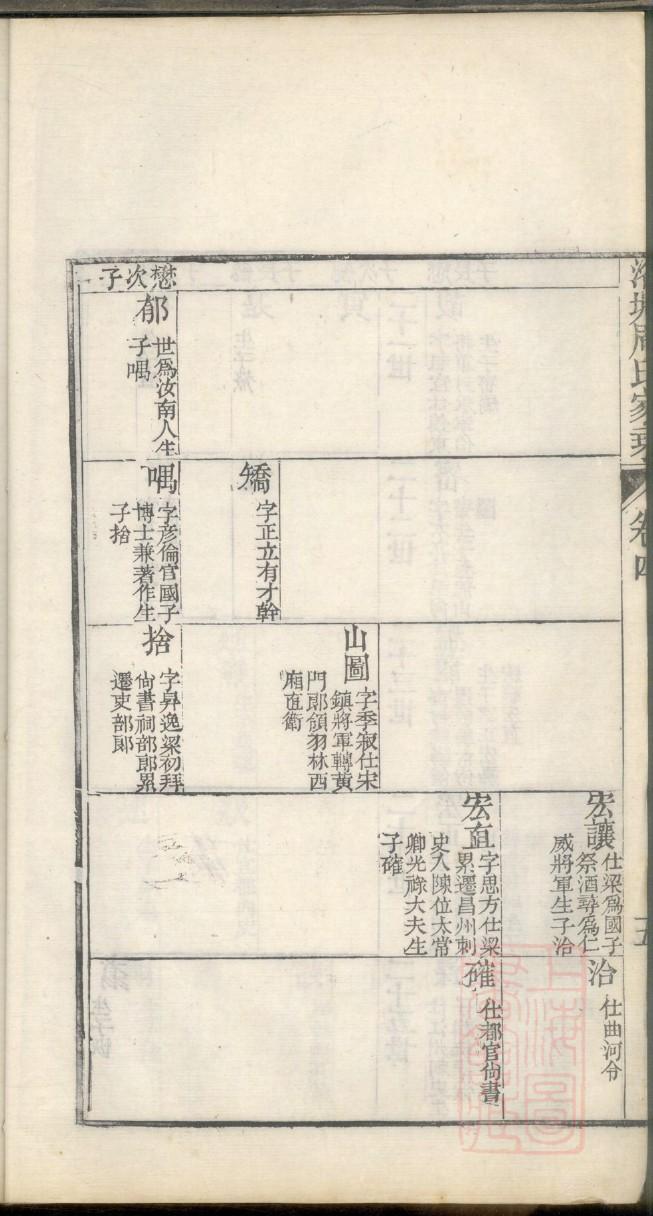 周氏家乘
卷四
五
宏讓
仕梁爲國子
祭酒尋爲仁
威將軍生子治
治
仕曲河令
宏直
字思方仕梁
累遷昌州刺
史入陳位太常
卿光祿大夫生
子確
確
仕都官尙書
山圖
字季寂仕宋
鎮將軍轉黃
門郎領羽林西
廂直衛
矯
字正立有才幹
懋次子
郁
世爲汝南人生
子喁
喁
字彦倫官國子
博士兼著作生
子捨
捨
字昇逸梁初拜
尙書祠部郎累
遷吏部郎